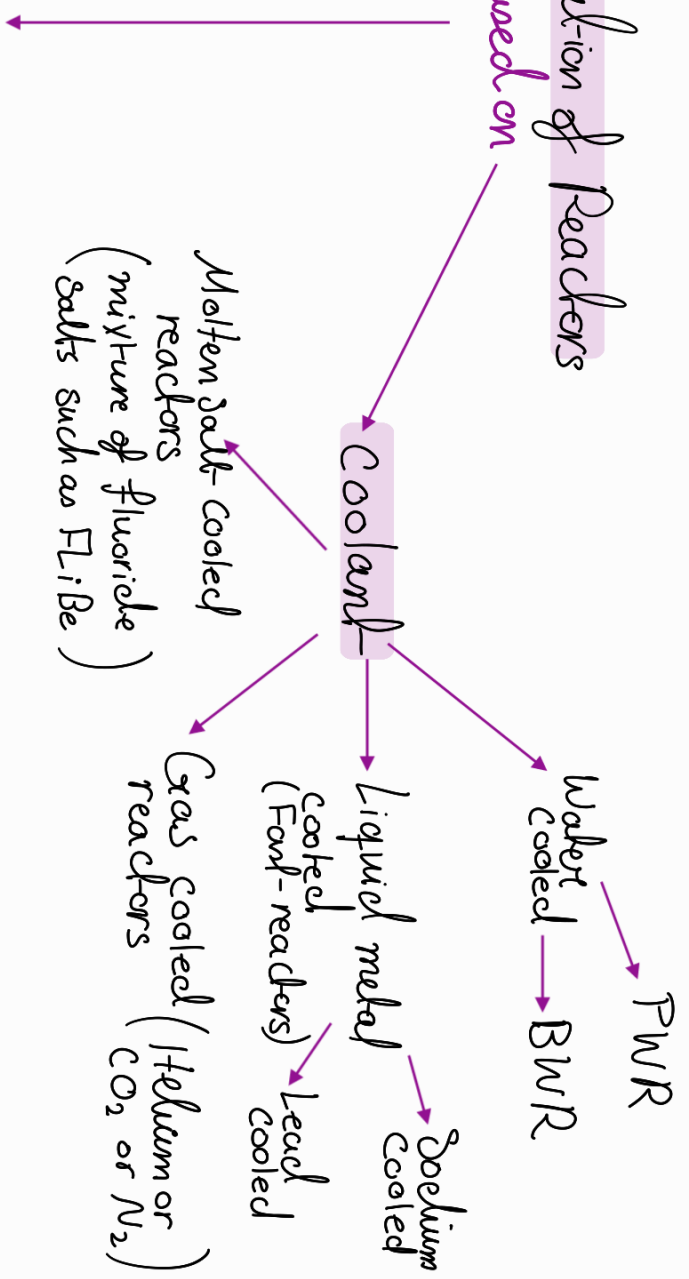 ation of Reactors
ased on
Coolant
Water
cooled
PWR
BWR
Liquid metal
cooled
(Fast reactors)
Sodium
Cooled
Lead
cooled
Gas cooled
reactors
(Helium or
CO₂ or N₂)
Molten salt cooled
reactors
(mixture of fluoride
salts such as FLiBe)